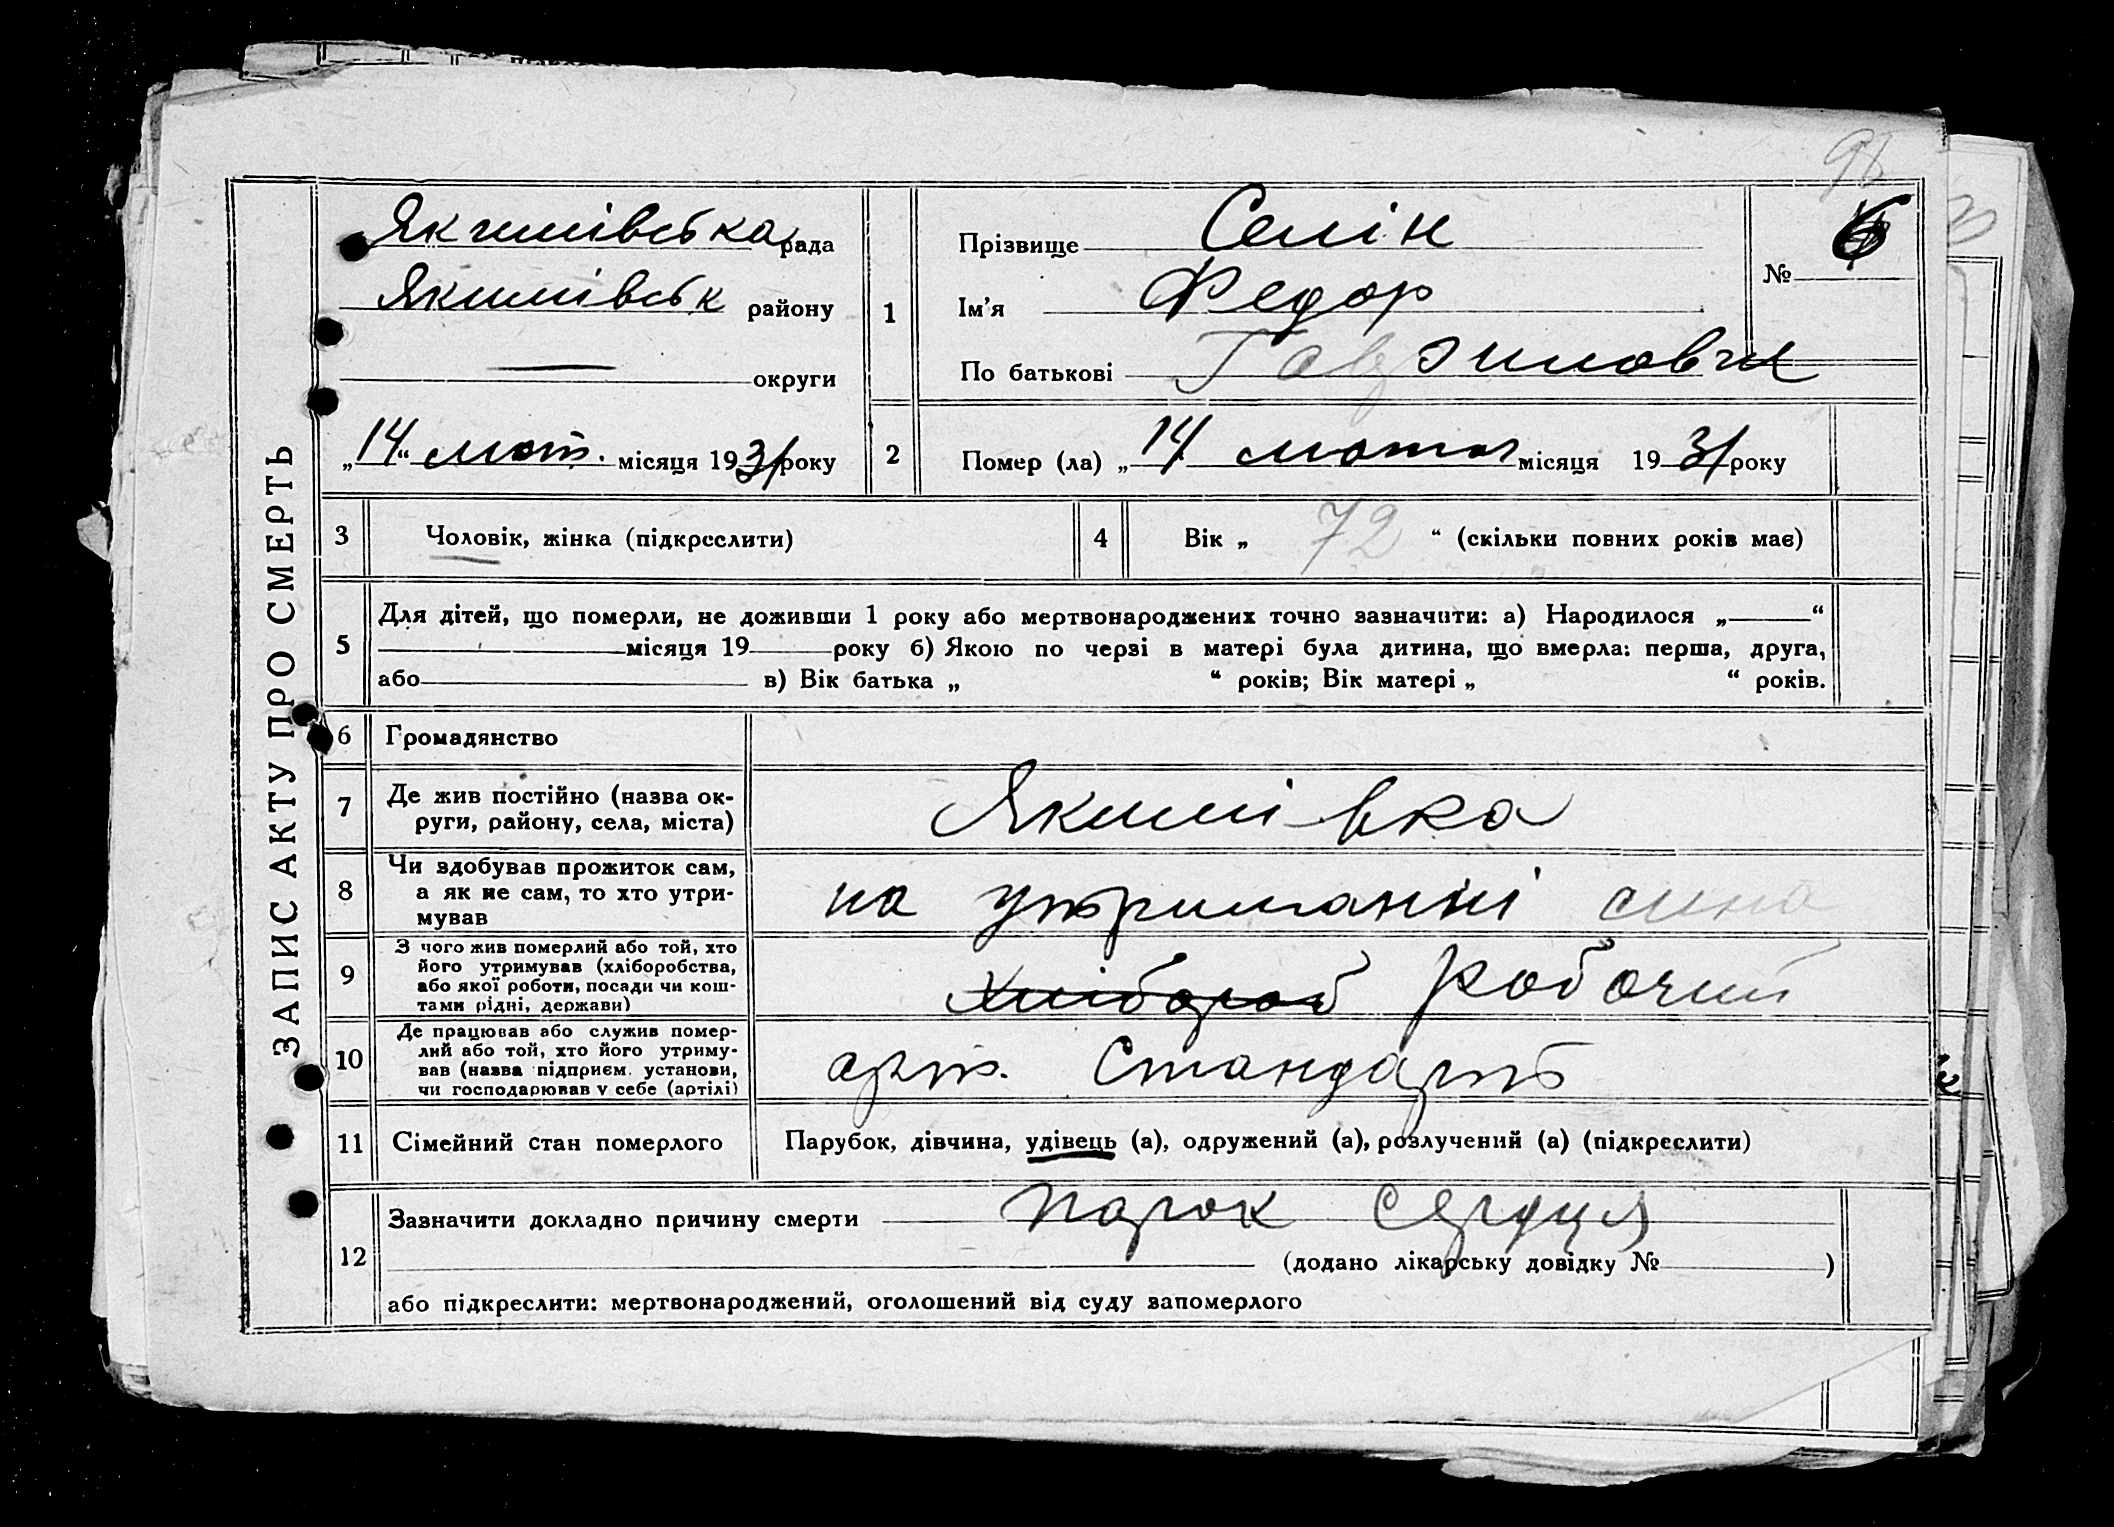 98
ЗАПИС АКТУ ПРО СМЕРТЬ
Якимівська рада
Якимівськ району
округи
„14“ лют. місяця 1931 року
1
Прізвище Селін
Ім'я Федор
По батькові Гаврилович
№ 6
2
Помер (ла) „14 лютого місяця 1931 року
3
Чоловік, жінка (підкреслити)
4
Вік „ 72 “ (скільки повних років має)
5
Для дітей, що померли, не доживши 1 року або мертвонароджених точно зазначити: а) Народилося „ “
місяця 19 року б) Якою по черзі в матері була дитина, що вмерла: перша, друга,
або в) Вік батька „ “ років; Вік матері „ “ років.
6
Громадянство
7
Де жив постійно (назва ок-
руги, району, села, міста)
Якимівка
8
Чи здобував прожиток сам,
а як не сам, то хто утри-
мував
на утриманні сина
9
З чого жив померлий або той, хто
його утримував (хліборобства,
або якої роботи, посади чи кош-
тами рідні, держави)
Хлібороб Робочий
10
Де працював або служив помер-
лий або той, хто його утриму-
вав (назва підприєм. установи,
чи господарював у себе (артілі)
арт. Стандарт
11
Сімейний стан померлого
Парубок, дівчина, удівець (а), одружений (а), розлучений (а) (підкреслити)
12
Зазначити докладно причину смерти порок сердця
(додано лікарську довідку № )
або підкреслити: мертвонароджений, оголошений від суду запомерлого